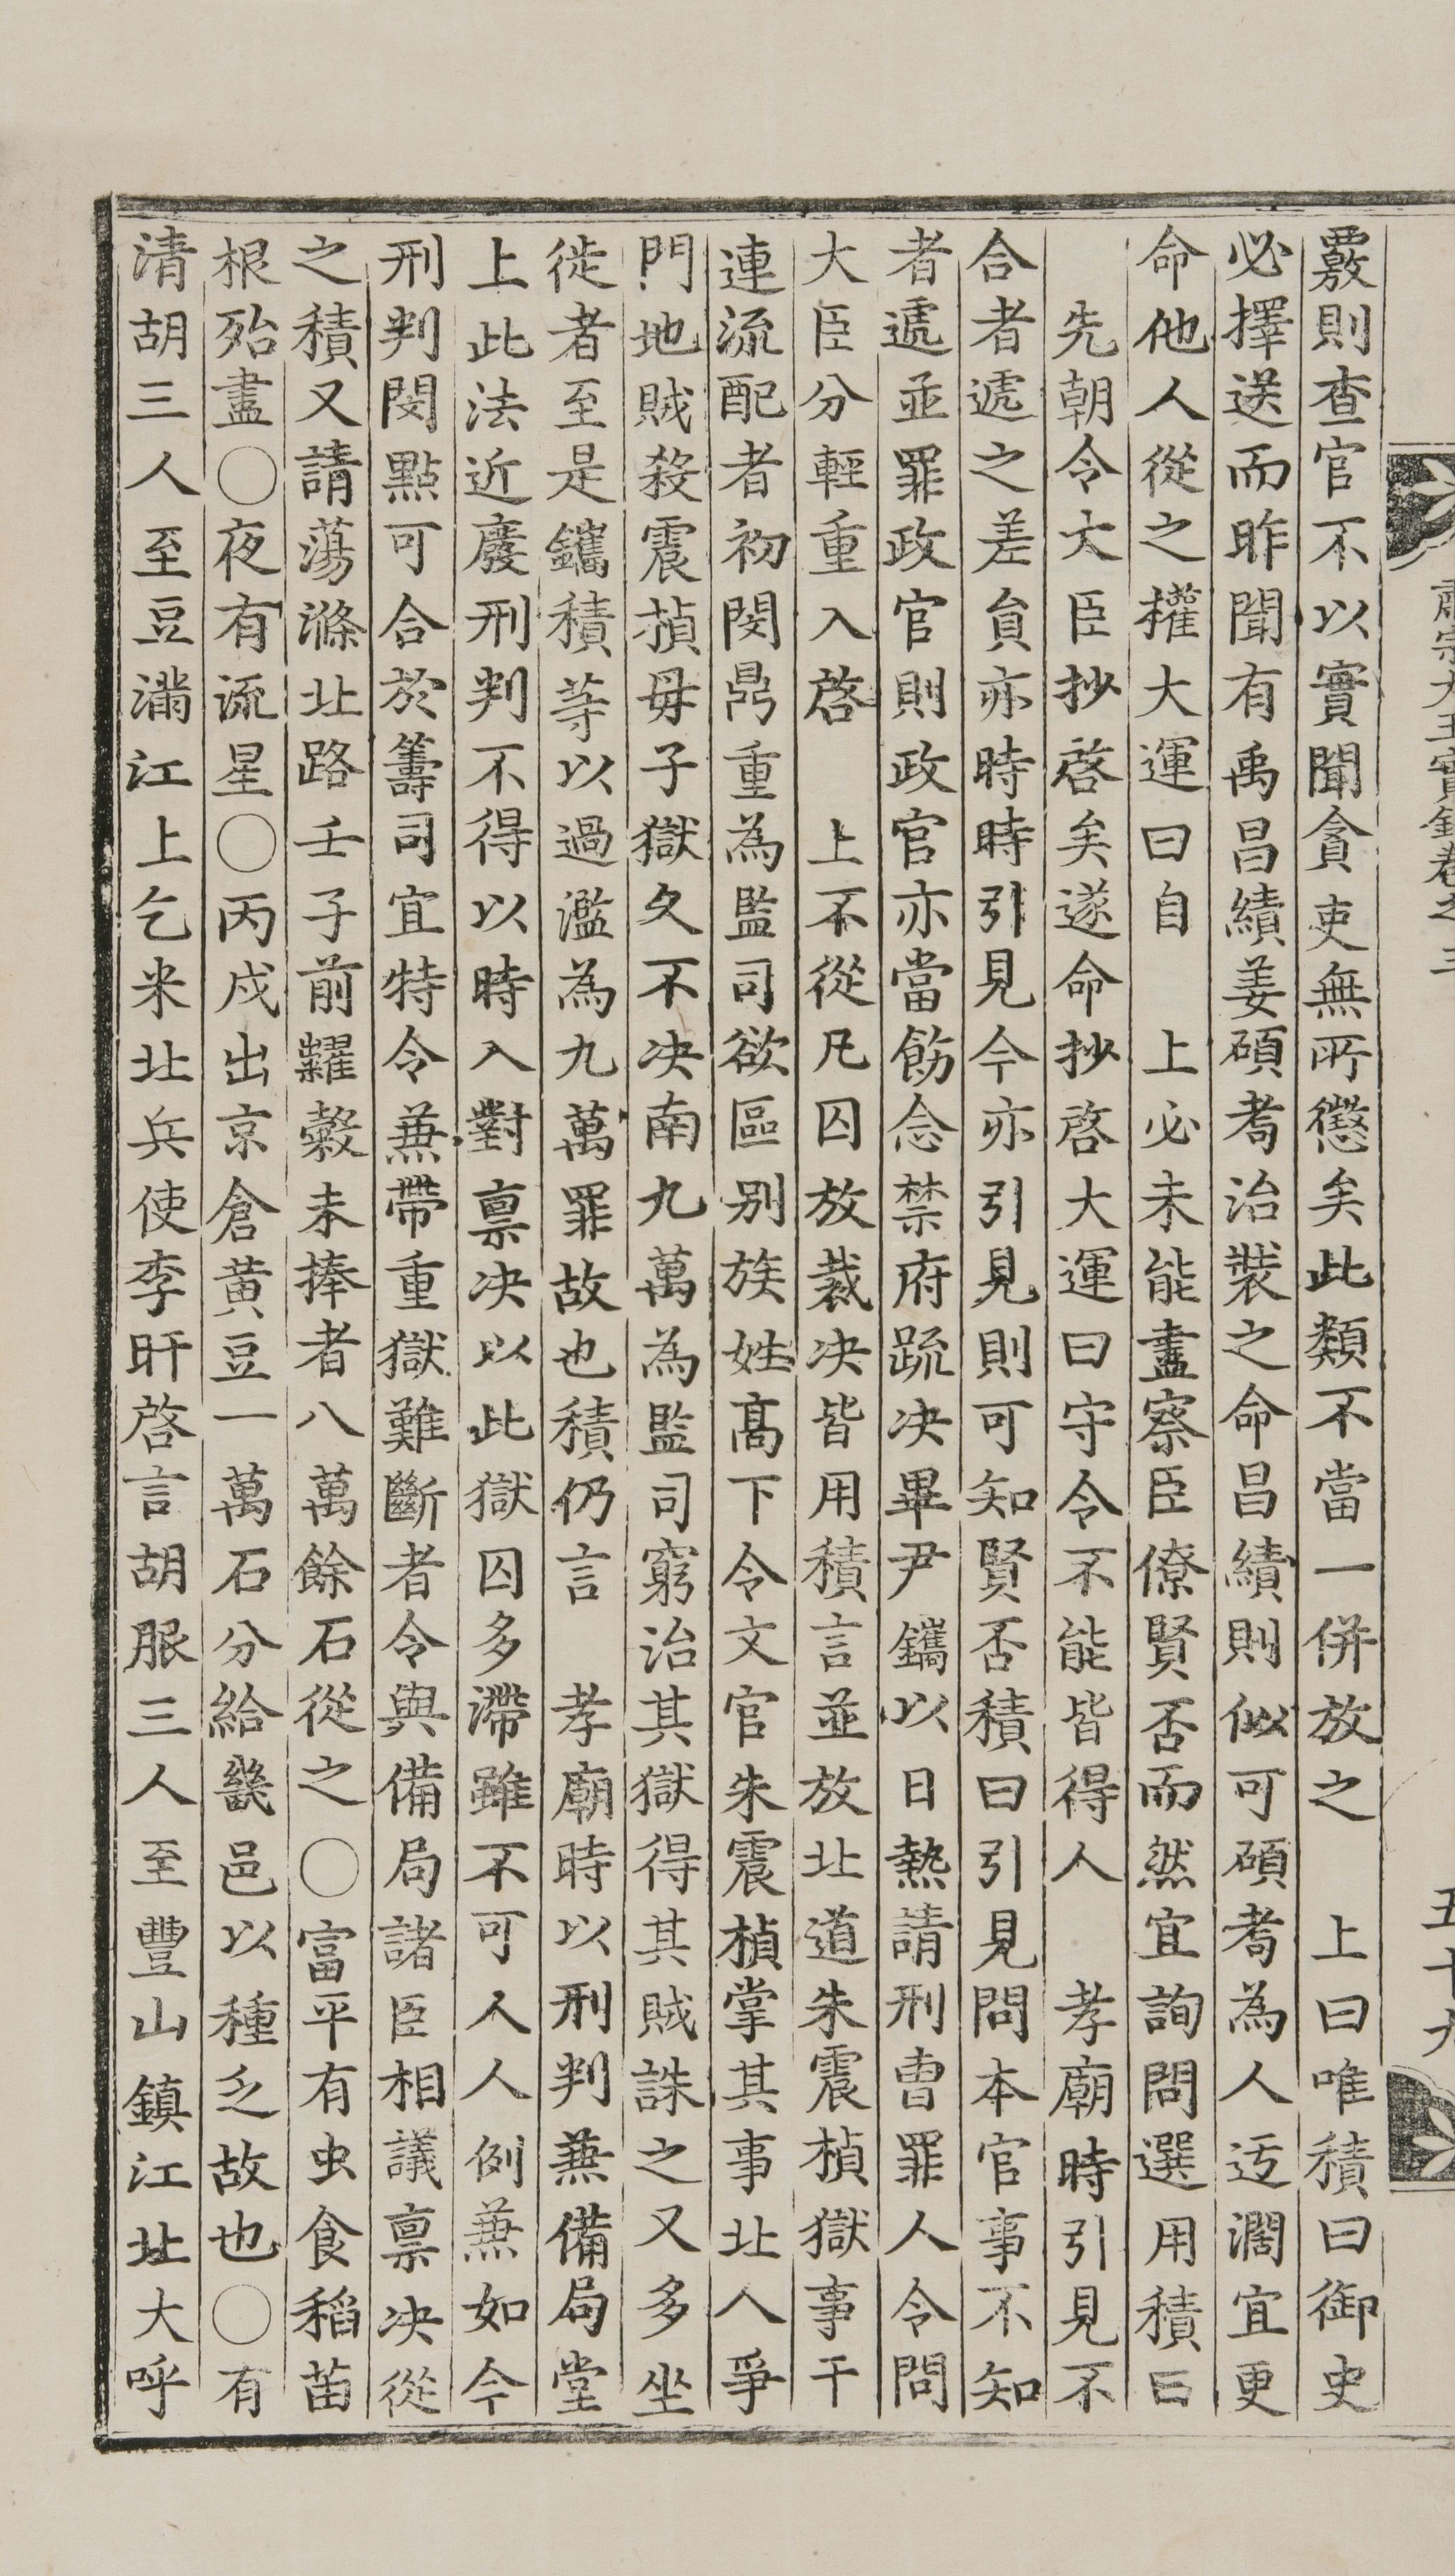 肅宗大王實錄卷之三
五十九
覈則查官不以實聞貪吏無所懲矣此類不當一併放之 上曰唯積曰御史
必擇送而昨聞有禹昌績姜碩耉治裝之命昌績則似可碩耉為人迃濶宜更
命他人從之權大運曰自 上必未能盡察臣僚賢否而然宜詢問選用積曰
先朝令大臣抄啓矣遂命抄啓大運曰守令不能皆得人 孝廟時引見不
合者遞之差員亦時時引見今亦引見則可知賢否積曰引見問本官事不知
者遞並罪政官則政官亦當飭念禁府䟽决畢尹鑴以日熱請刑曹罪人令問
大臣分輕重入啓 上不從凡囚放裁决皆用積言並放北道朱震楨獄事干
連流配者初閔鼎重為監司欲區別族姓髙下令文官朱震楨掌其事北人爭
門地賊殺震楨母子獄久不决南九萬為監司窮治其獄得其賊誅之又多坐
徙者至是鑴積等以過濫為九萬罪故也積仍言 孝廟時以刑判兼備局堂
上此法近廢刑判不得以時入對禀决以此獄囚多滯雖不可人人例兼如今
刑判閔點可合於籌司宜特令兼帶重獄難斷者令與備局諸臣相議禀决從
之積又請蕩滌北路壬子前糶穀未捧者八萬餘石從之○富平有虫食稻苗
根殆盡○夜有流星○丙戌出京倉黃豆一萬石分給畿邑以種乏故也○有
清胡三人至豆滿江上乞米北兵使李旰啓言胡服三人至豐山鎮江北大呼